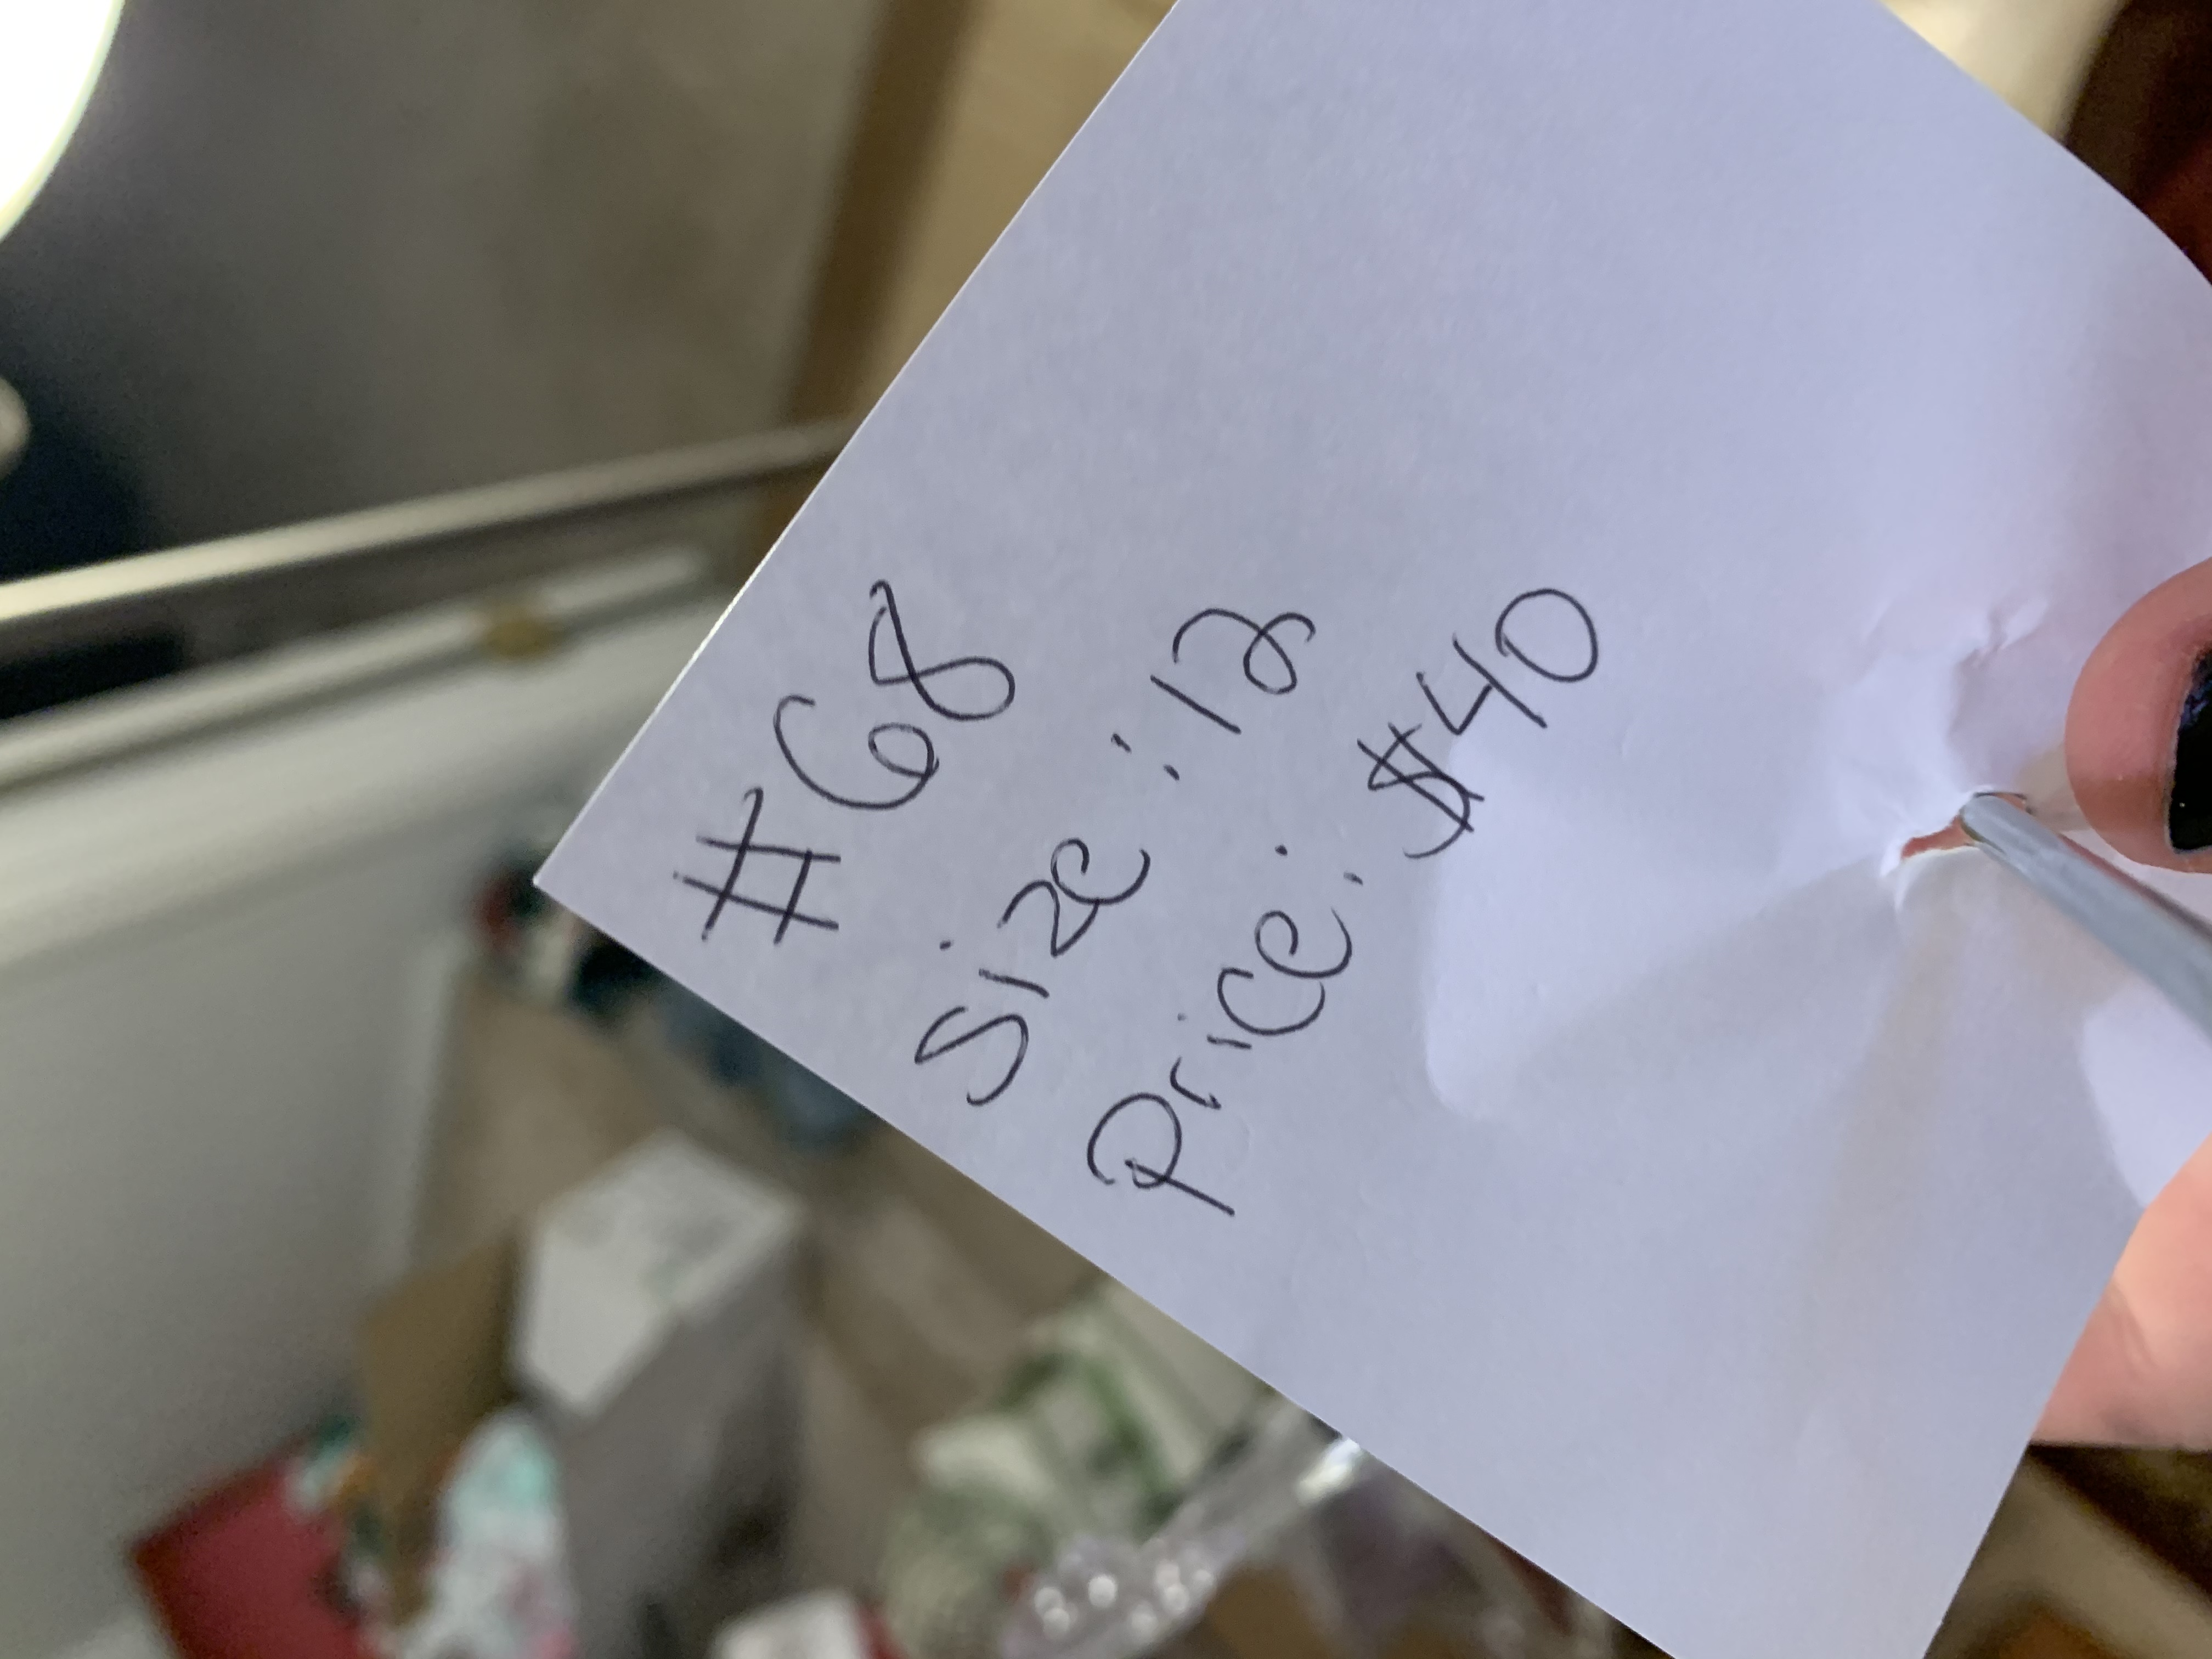 #68
Size: 12
Price: $40